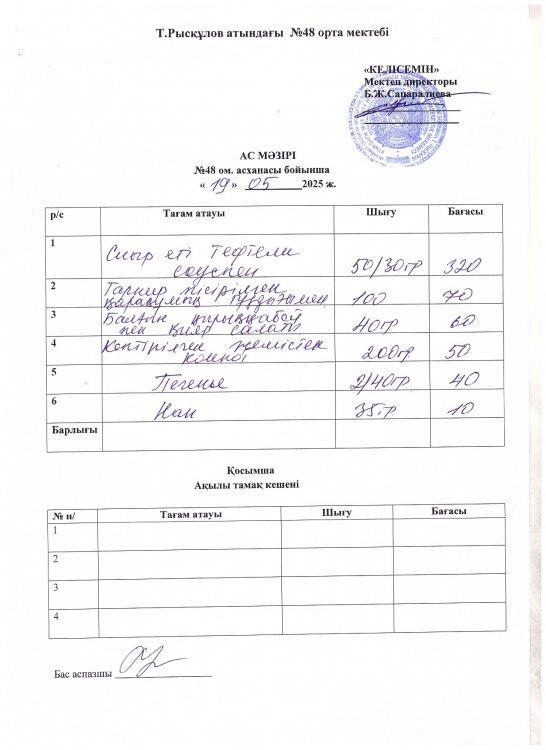 Т.Рысқұлов атындағы №48 орта мектебі
«КЕЛІСЕМІН»
Мектеп директоры
Б.Ж.Сапаралиева
АС МӘЗІРІ
№48 ом. асханасы бойынша
« 19 » 05 2025 ж.
р/с Тағам атауы Шығу Бағасы
1 Сиыр еті Тефтели
соуспен 50/30гр 320
2 Гарнир пісірілген
қарақұмық 100 70
3 Балғын қырыққабат
пен қияр салаты 40гр 60
4 Кептірілген жемістен
компот 200гр 50
5 Печенье 2/40гр 40
6 Нан 35гр 10
Барлығы
Қосымша
Ақылы тамақ кешені
№ п/ Тағам атауы Шығу Бағасы
1
2
3
4
Бас аспазшы